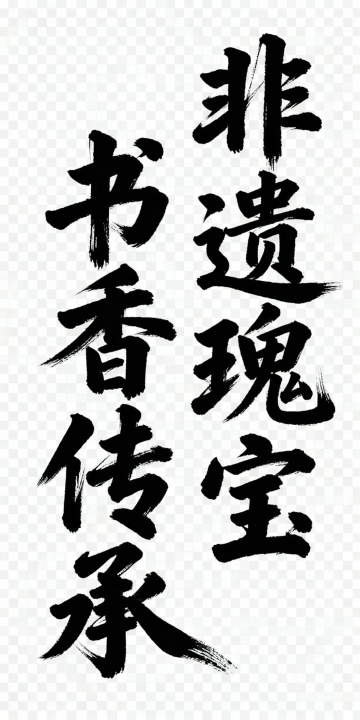 非遗瑰宝
书香传承